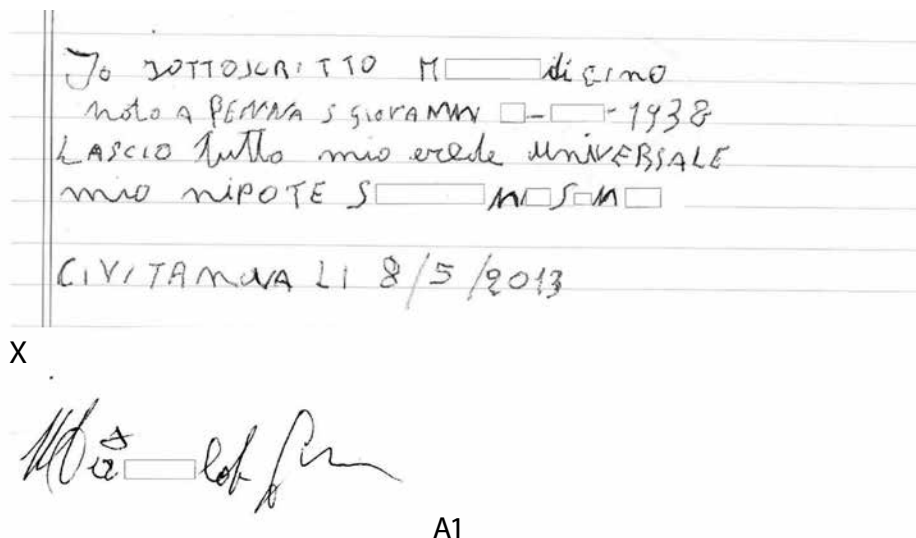 Io SOTTOSCRITTO M di gino
noto A PENNA S GIOVANNI - -1938
LASCIO tutto mio erede UNIVERSALE
mio NIPOTE S
CIVITANOVA LI 8/5/2013
X
A1